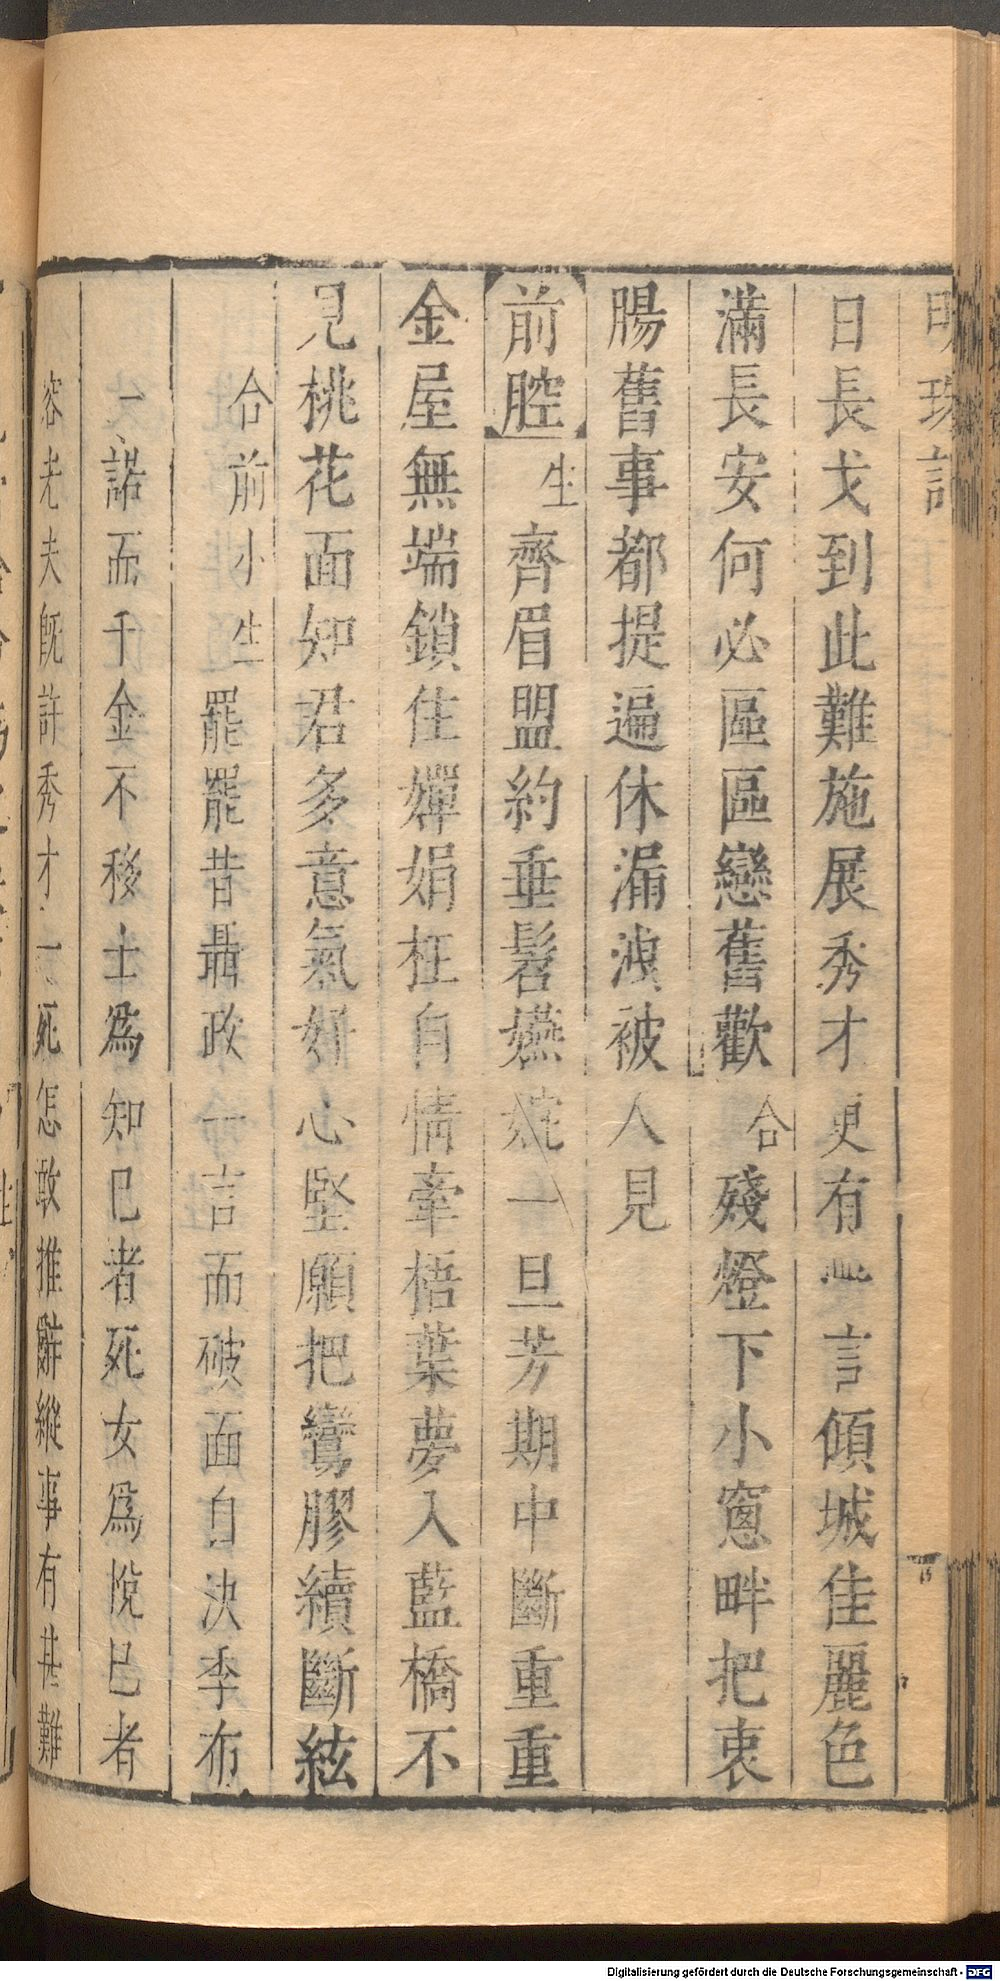 明珠記
日長戈到此難施展秀才更有一言傾城佳麗色
滿長安何必區區戀舊歡合殘燈下小窻畔把衷
腸舊事都提遍休漏洩被人見
前腔生齊眉盟約垂髫嬿婉一旦芳期中斷重重
金屋無端鎖住嬋娟枉自情牽梧葉夢入藍橋不
見桃花面知君多意氣好心堅願把鸞膠續斷絃
合前小生罷罷昔聶政一言而破面自決季布
一諾而千金不移士爲知已者死女爲悅已者
容老夫既許秀才一死怎敢推辭縱事有甚難
Digitalisierung gefördert durch die Deutsche Forschungsgemeinschaft - DFG